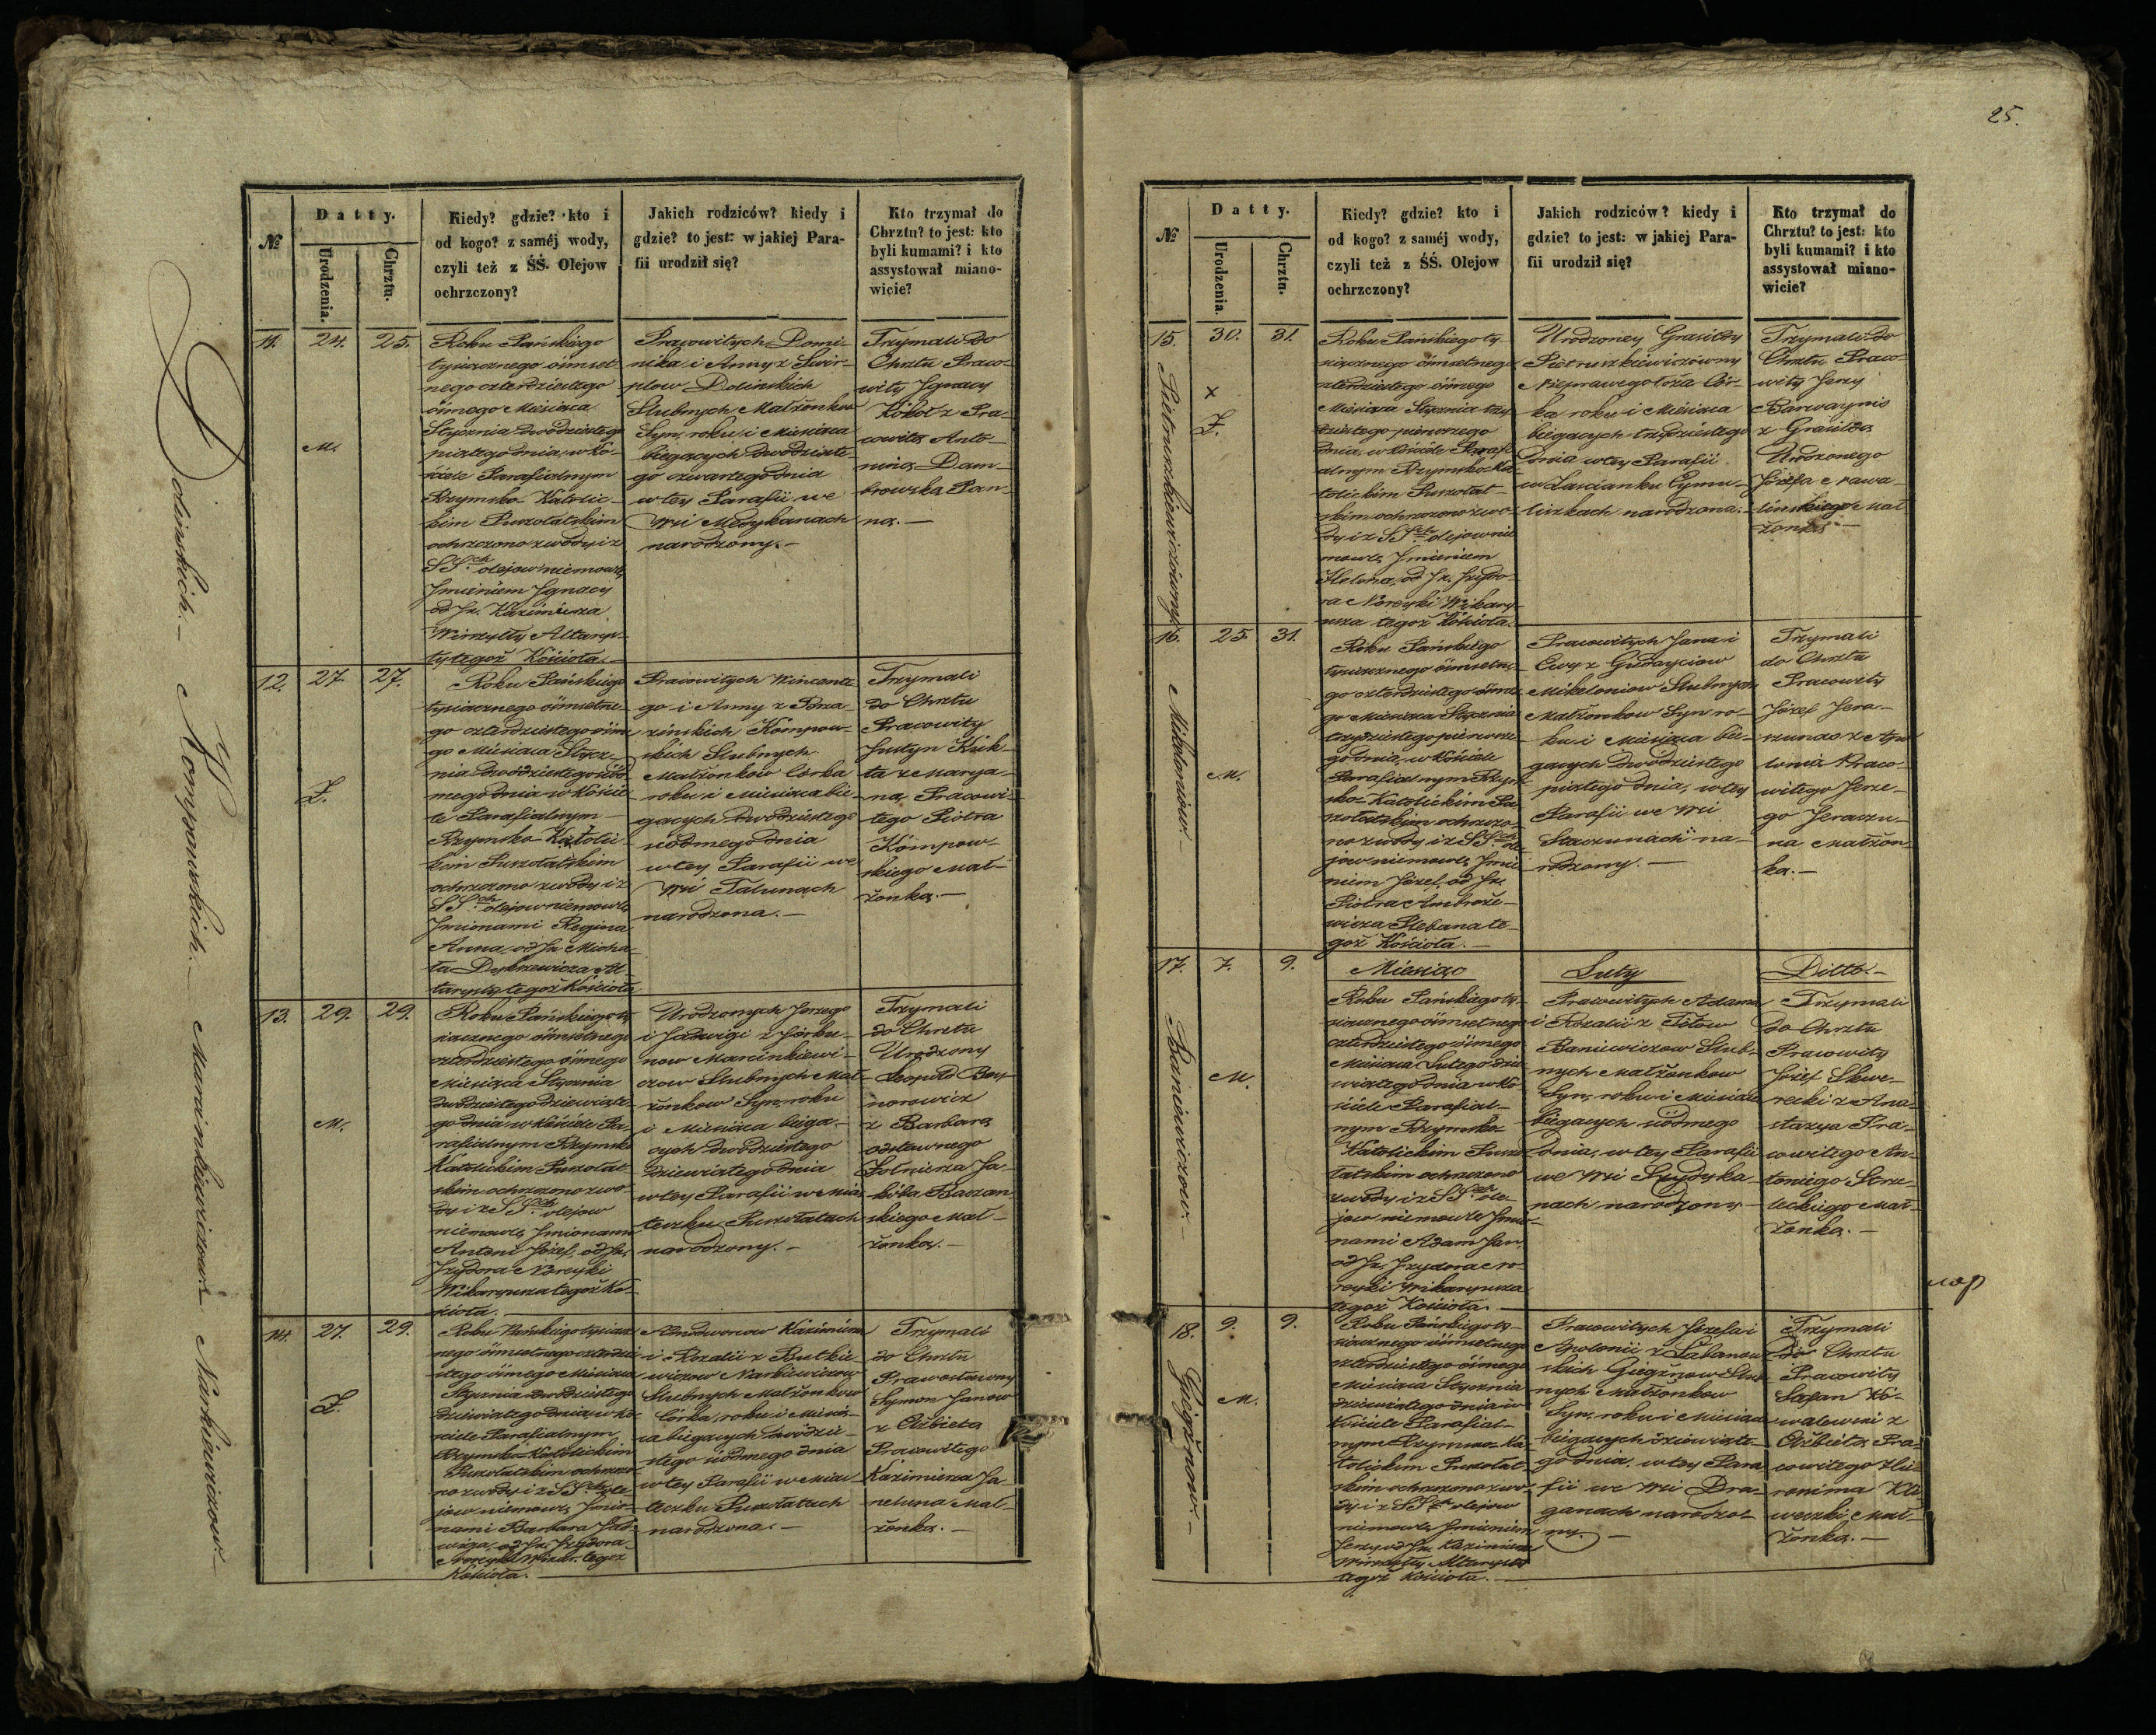 25.
№
Datty.
Urodzenia.
Chrztu.
Kiedy? gdzie? kto i
od kogo? z saméj wody,
czyli też z ŚŚ. Olejow
ochrzczony?
Jakich rodziców? kiedy i
gdzie? to jest: w jakiej Para-
fii urodził się?
Kto trzymał do
Chrztu? to jest: kto
byli kumami? i kto
assystował miano-
wicie?
Dolinskich.— Kompowskich.— Marcinkiewiczow— Narkiewiczow—
11.
24.
25.
M.
Roku Pańskiego
tysiacznego ósmset
nego czterdziestego
ósmego Miesiaca
Stycznia dwódziestego
piątego dnia, w Ko-
ściele Parafialnym
Rzymsko Katolic-
kim Puszołatskim
ochrzczono z wody i z
SSch olejow niemowle
Jmieniem Jgnacy
od Jx. Kazimierza
Wirzyłły Altarys-
ty tegoż Kościoła.—
Pracowitych Domi-
nika i Anny z Swir-
plow Dolinskich
Slubnych Małżonkow
Syn, roku i Miesiaca
biegacych dwódzieste-
go czwartego dnia
w tey Parafii we
Wsi Medykanach
narodzony.—
Trzymali do
Chrztu Praco-
wity Jgnacy
Kokot z Pra-
cowitą Anto-
niną Dam-
browską Pan-
ną.—
12.
27.
27.
Ż.
Roku Pańskiego
tysiacznego ósmsetne-
go czterdziestego ósme
go Miesiaca Stycz-
nia dwódziestego siód-
mego dnia w Koście-
le Parafialnym
Rzymsko Katolic-
kim Puszołatskim
ochrzczono z wody i z
SSch olejow niemowle
Jmionami Regina
Anna, od Jx. Micha-
ła Al-
tarysty tegoż Kościoła
Pracowitych Wincente-
go i Anny z
Kompow-
skich Slubnych
Małżonków Córka
roku i Miesiaca bie-
gacych dwódziestego
siodmego dnia
w tey Parafii we
Wsi Talunach
narodzona.—
Trzymali
do Chrztu
Pracowity
Justyn Kuk-
ta z Marya-
ną Pracowi-
tego Piotra
Kompow-
skiego Mał-
żonką.—
13.
29.
29.
M.
Roku Pańskiego ty-
siacznego ósmsetnego
czterdziestego ósmego
Miesiaca Stycznia
dwódziestego dziewiate-
go dnia w Kościele Pa-
rafialnym Rzymsko
Katolickim Puszołat-
skim ochrzczono z wo-
dy i z SSch olejow
niemowle Jmionami
Antoni Józef, od Jx.
Jzydora Noreyki
Wikaryusza tegoż Ko-
ścioła.
Urodzonych Jerzego
i Jadwigi z
Marcinkiewi-
czow Slubnych Mał-
żonkow Syn, roku
i Miesiaca biega-
cych dwódziestego
dziewiatego dnia
w tey Parafii w Mia-
steczku Puszołatach
narodzony.—
Trzymali
do Chrztu
Urodzony
Leopold
z Barbarą
odstawnego
Żołnierza Ja-
kóba
skiego Mał-
żonką.—
14.
27.
29.
Ż.
Roku Pańskiego tysiacz
nego ósmsetnego czterdzie
stego ósmego Miesiaca
Stycznia dwódziestego
dziewiatego dnia, w Ko-
ściele Parafialnym
Rzymsko Katolickim
Puszołatskim ochrzczo
no z wody i z SSch ole-
jow niemowle Jmio-
nami Barbara Jad-
wiga, od Jx. Jzydora
Noreyki Wikar. tegoż
Kościoła.—
Kazimierza
i Rozalii z Butkie-
wiczow Narkiewiczow
Slubnych Małżonkow
Córka, roku i Miesia-
ca biegacych dwódzie-
stego siódmego dnia
w tey Parafii w Mia-
steczku Puszołatach
narodzona.—
Trzymali
do Chrztu
Symon Janow
z Olżbietą
Pracowitego
Kazimierza Ja-
neluna Mał-
żonką.—
№
Datty.
Urodzenia.
Chrztu.
Kiedy? gdzie? kto i
od kogo? z saméj wody,
czyli też z ŚŚ. Olejow
ochrzczony?
Jakich rodziców? kiedy i
gdzie? to jest: w jakiej Para-
fii urodził się?
Kto trzymał do
Chrztu? to jest: kto
byli kumami? i kto
assystował miano-
wicie?
Pietruszkiewiczówny
15.
30.
31.
×
Ż.
Roku Pańskiego ty-
siacznego ósmsetnego
czterdziestego ósmego
Miesiaca Stycznia trzy
dziestego pierwszego
dnia, w Kościele Parafi
alnym Rzymsko-Ka-
tolickim Puszołat-
skim ochrzczono z wo-
dy i z SSch olejow nie
mowle Jmieniem
Helena, od Jx. Jzydo-
ra Noreyki Wikary-
usza tegoż Kościoła.
Urodzoney Grasildy
Pietruszkiewiczówny
Nieprawego łoża Cór-
ka roku i Miesiaca
biegacych trzydziestego
dnia w tey Parafii
w Zascianku Cymu-
liszkach narodzona.—
Trzymali do
Chrztu Praco-
wity Jerzy
z Grasildą
Urodzonego
Józefa
Mał
żonką—
Mikołoniow—
16.
25.
31.
M.
Roku Pańskiego
tysiacznego ósmsetne-
go czterdziestego ósme-
go Miesiaca Stycznia
trzydziestego pierwsze-
go dnia, w Kościele
Parafialnym Rzym-
sko-Katolickim Pu-
szołatskim ochrzczo-
no z wody i z SSch ole-
jow niemowle Jmie-
niem Józef, od Jx.
Piotra Ambroże-
wicza Plebana te-
goż Kościoła.—
Pracowitych Jana i
Ewy z
Mikołoniow Slubnych
Małżonkow Syn ro-
ku i Miesiaca bie-
gacych dwódziestego
piątego dnia, w tey
Parafii we Wsi
Staczunach na-
rodzony.—
Trzymali
do Chrztu
Pracowity
Józef Jera-
z Apo-
lonią Praco-
witego Jerze-
go Jeraszu-
na Małżon-
ką.—
Baniewiczow—
17.
7.
9.
M.
Miesiąc
Luty
Ditto.—
Roku Pańskiego ty-
siacznego ósmsetnego
czterdziestego ósmego
Miesiaca Lutego dzie
wiatego dnia w Ko-
ściele Parafial-
nym Rzymsko
Katolickim Puszo
łatskim ochrzczono
z wody i z SSch ole-
jow niemowle Jmio-
nami Adam Jan,
od Jx. Jzydora No-
reyki Wikaryusza
tegoż Kościoła.—
Pracowitych Adama
i Rozalii z Titow
Baniewiczow Slub-
nych Małżonkow
Syn, roku i Miesiaca
biegacych siódmego
dnia, w tey Parafii
we Wsi
nach narodzony—
Trzymali
do Chrztu
Pracowity
Józef Skwe-
recki z Ana-
stazyą Pra-
cowitego An-
toniego Strze-
leckiego Mał-
żonką.—
Giegżnow.—
18.
9.
9.
M.
Roku Pańskiego ty-
siacznego ósmsetnego
czterdziestego ósmego
Miesiaca Stycznia
dziewiatego dnia w
Kościele Parafial-
nym Rzymsko-Ka-
tolickim Puszołat-
skim ochrzczono z wo-
dy i z SSch olejow
niemowle Jmieniem
Jerzy od Jx. Kazimierza
Wirzyłły Altarysty
tegoż Kościoła.—
Pracowitych Józefa i
Apolonii z Łabanow-
skich Giegżnow Slub-
nych Małżonkow
Syn, roku i Miesiaca
biegacych dziewiate-
go dnia, w tey Para
fii we Wsi Dra-
ganach narodzo-
ny.—
Trzymali
do Chrztu
Pracowity
Stefan
z
Olżbietą Pra-
cowitego Hie-
ronima
Mał-
żonką.—